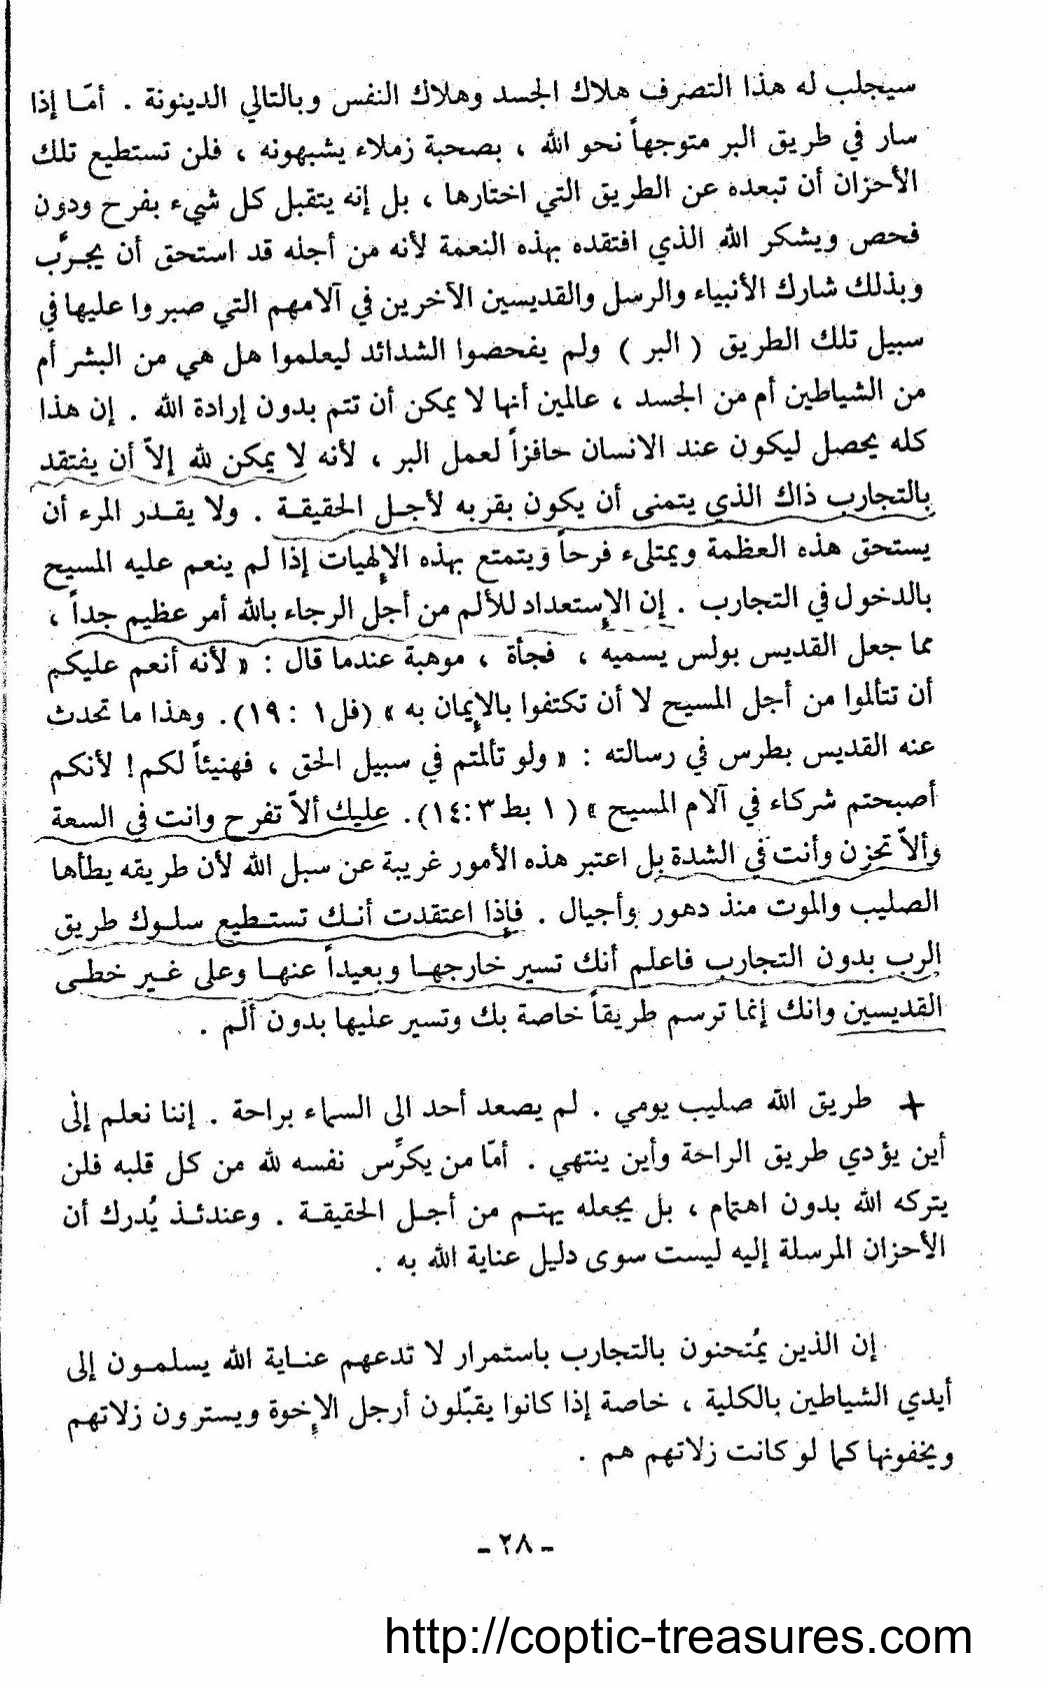 سيجلب له هذا التصرف هلاك الجسد وهلاك النفس وبالتالي الدينونة . أمّا إذا
سار في طريق البر متوجهاً نحو الله ، بصحبة زملاء يشبهونه ، فلن تستطيع تلك
الأحزان أن تبعده عن الطريق التي اختارها ، بل إنه يتقبل كل شيء بفرح ودون
فحص ويشكر الله الذي افتقده بهذه النعمة لأنه من أجله قد استحق أن يجرَّب
وبذلك شارك الأنبياء والرسل والقديسين الآخرين في آلامهم التي صبروا عليها في
سبيل تلك الطريق ( البر ) ولم يفحصوا الشدائد ليعلموا هل هي من البشر أم
من الشياطين أم من الجسد ، عالمين أنها لا يمكن أن تتم بدون إرادة الله . إن هذا
كله يحصل ليكون عند الانسان حافزاً لعمل البر ، لأنه لا يمكن لله إلاّ أن يفتقد
بالتجارب ذاك الذي يتمنى أن يكون بقربه لأجل الحقيقة . ولا يقدر المرء أن
يستحق هذه العظمة ويمتلىء فرحاً ويتمتع بهذه الإلهيات إذا لم ينعم عليه المسيح
بالدخول في التجارب . إن الإستعداد للألم من أجل الرجاء بالله أمر عظيم جداً ،
مما جعل القديس بولس يسميه ، فجأة ، موهبة عندما قال : « لأنه أنعم عليكم
أن تتألموا من أجل المسيح لا أن تكتفوا بالإيمان به » (فل١ : ١٩). وهذا ما تحدث
عنه القديس بطرس في رسالته : « ولو تألمتم في سبيل الحق ، فهنيئاً لكم! لأنكم
أصبحتم شركاء في آلام المسيح » ( ١ بط ٣:١٤). عليك ألاّ تفرح وانت في السعة
وألاّ تحزن وأنت في الشدة بل اعتبر هذه الأمور غريبة عن سبل الله لأن طريقه يطأها
الصليب والموت منذ دهور وأجيال . فإذا اعتقدت أنك تستطيع سلوك طريق
الرب بدون التجارب فاعلم أنك تسير خارجها وبعيداً عنها وعلى غير خطى
القديسين وانك إنما ترسم طريقاً خاصة بك وتسير عليها بدون ألم .
+ طريق الله صليب يومي . لم يصعد أحد الى السماء براحة . إننا نعلم إلى
أين يؤدي طريق الراحة وأين ينتهي . أمّا من يكرِّس نفسه لله من كل قلبه فلن
يتركه الله بدون اهتمام ، بل يجعله يهتم من أجل الحقيقة . وعندئذ يُدرك أن
الأحزان المرسلة إليه ليست سوى دليل عناية الله به .
إن الذين يمُتحنون بالتجارب باستمرار لا تدعهم عناية الله يسلمون إلى
أيدي الشياطين بالكلية ، خاصة إذا كانوا يقبّلون أرجل الإخوة ويسترون زلاتهم
ويخفونها كما لو كانت زلاتهم هم .
- ٢٨ -
http://coptic-treasures.com